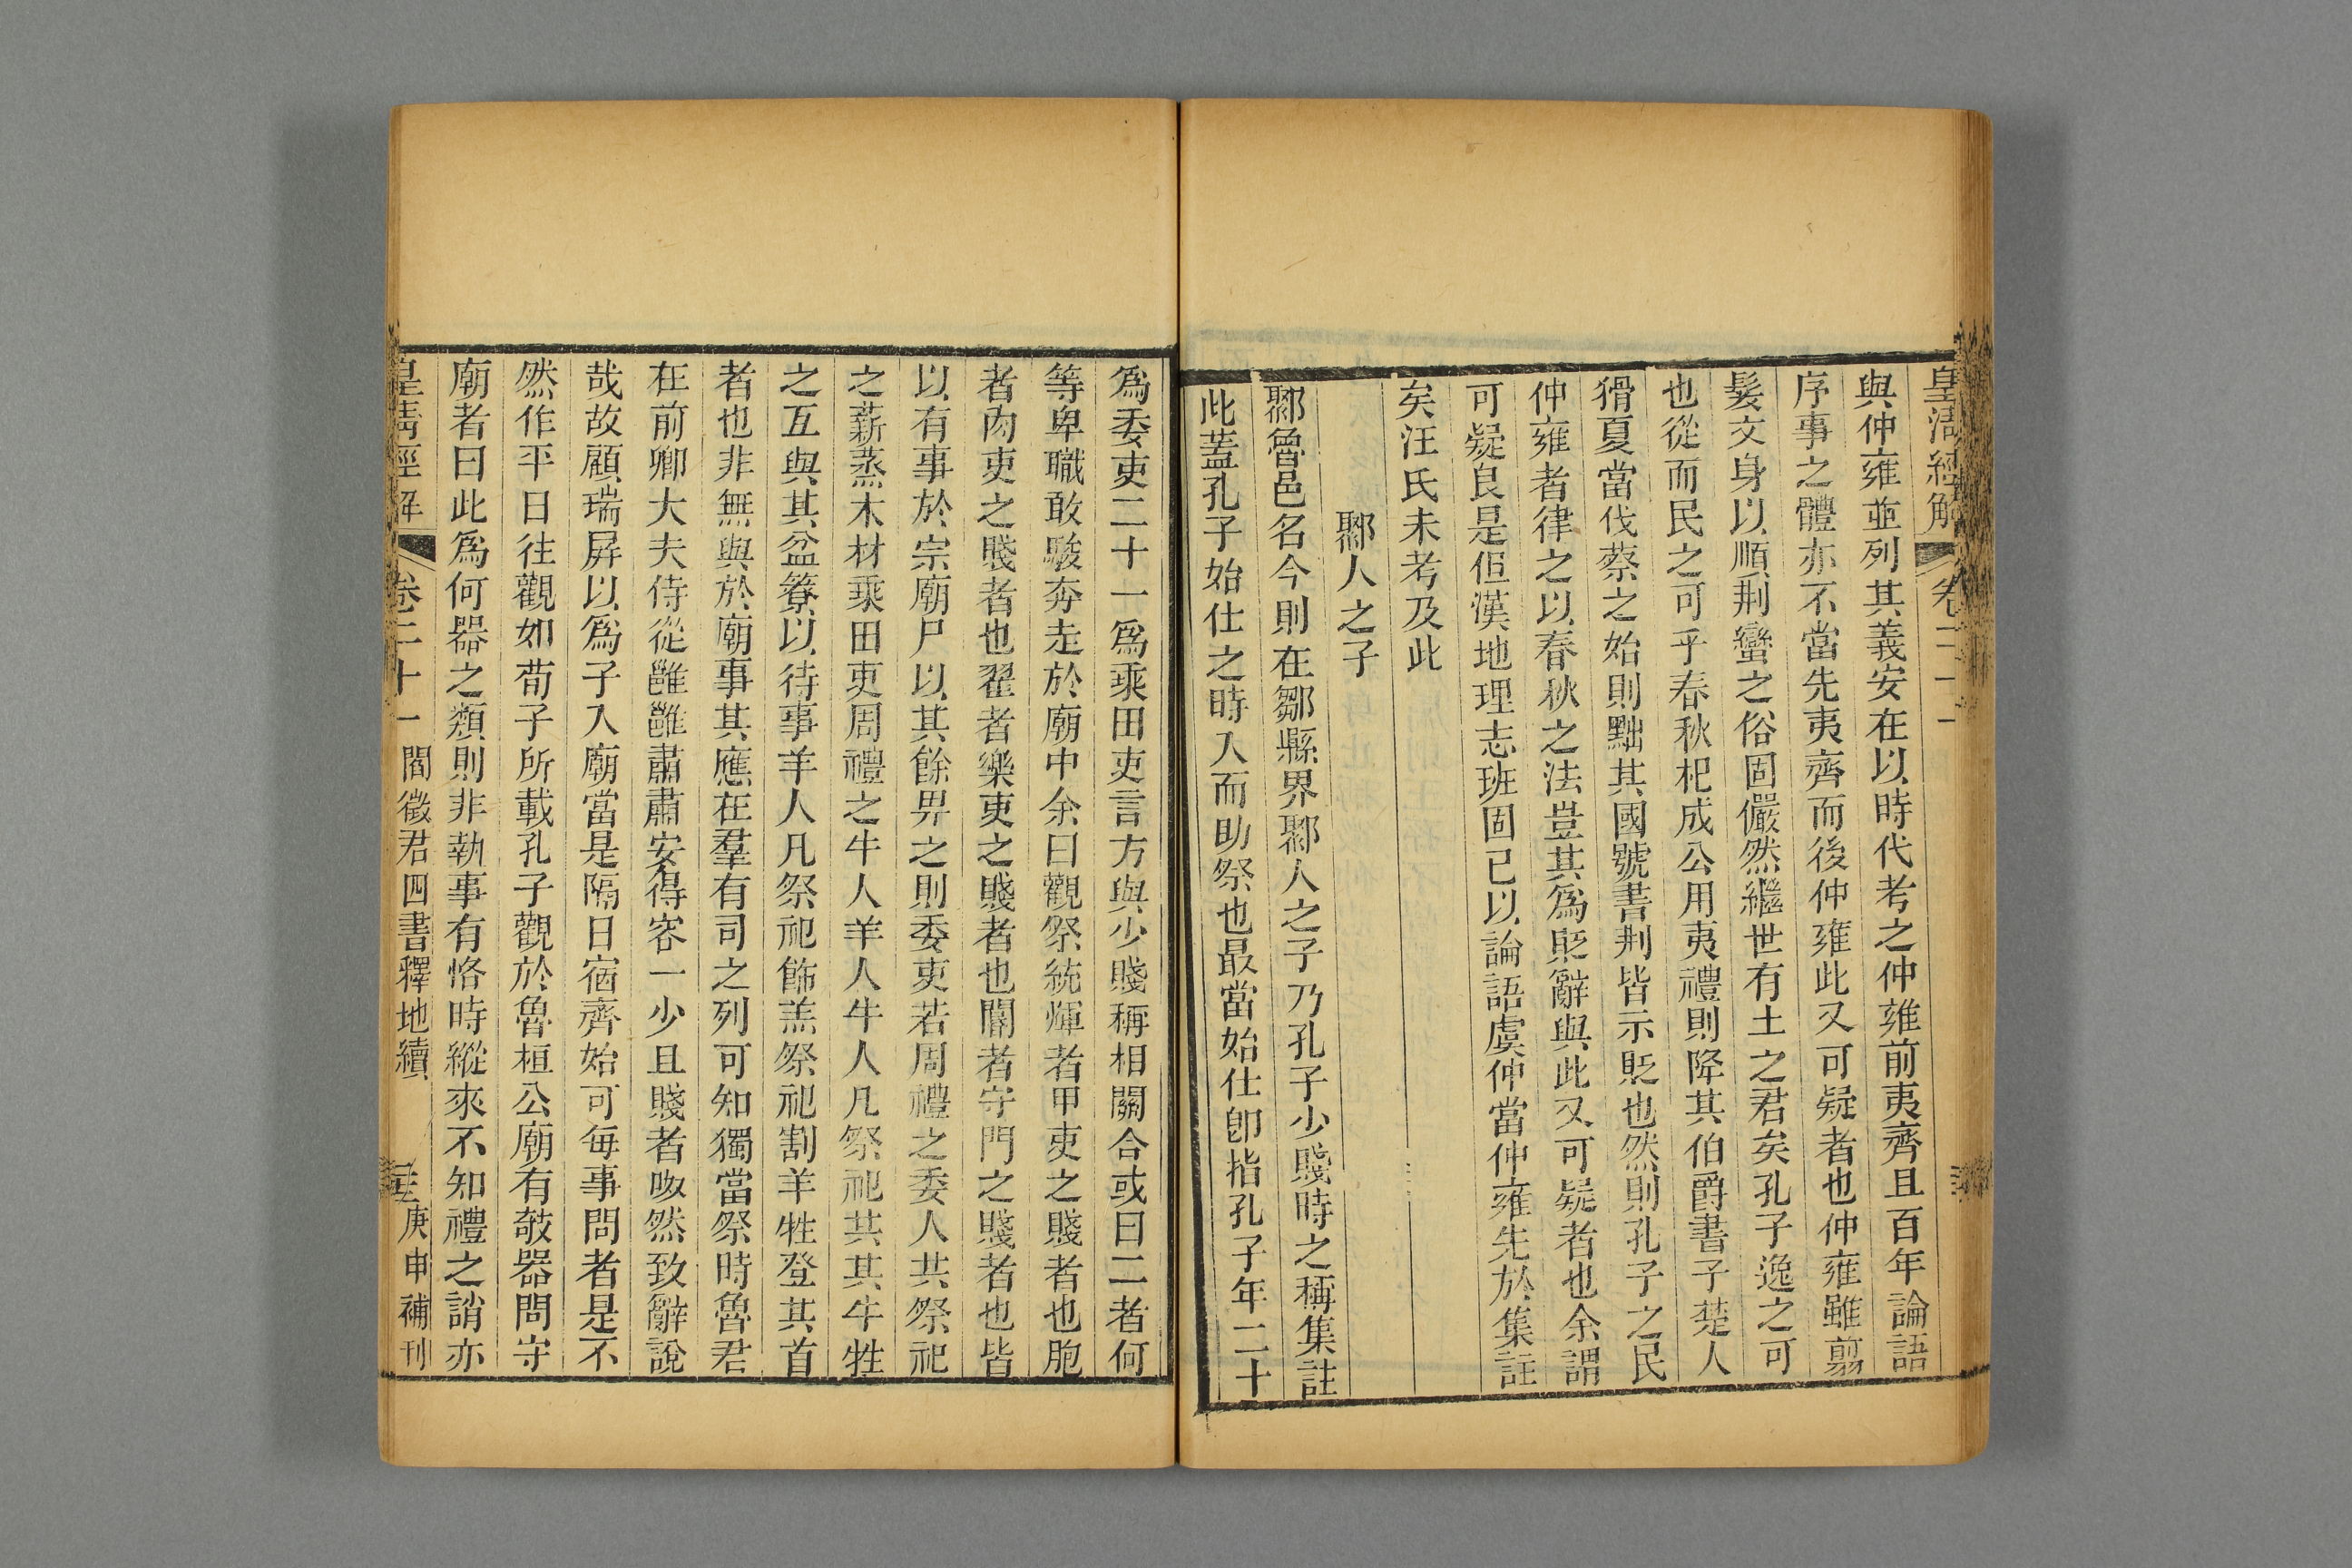 皇淸經解 卷二十一
與仲雍並列其義安在以時代考之仲雍前夷齊且百年論語
序事之體亦不當先夷齊而後仲雍此又可疑者也仲雍雖翦
髮文身以順荆蠻之俗固儼然繼世有土之君矣孔子逸之可
也從而民之可乎春秋杞成公用夷禮則降其伯爵書子楚人
猾夏當伐蔡之始則黜其國號書荆皆示貶也然則孔子之民
仲雍者律之以春秋之法豈其爲貶辭與此又可疑者也余謂
可疑良是但漢地理志班固已以論語虞仲當仲雍先於集註
矣汪氏未考及此
鄹人之子
鄹魯邑名今則在鄒縣界鄹人之子乃孔子少賤時之稱集註
此蓋孔子始仕之時入而助祭也最當始仕卽指孔子年二十
爲委吏二十一爲乘田吏言方與少賤稱相關合或曰二者何
等卑職敢駿奔走於廟中余曰觀祭統煇者甲吏之賤者也胞
者肉吏之賤者也翟者樂吏之賤者也閽者守門之賤者也皆
以有事於宗廟尸以其餘畀之則委吏若周禮之委人共祭祀
之薪蒸木材乘田吏周禮之牛人羊人牛人凡祭祀共其牛牲
之互與其盆簝以待事羊人凡祭祀飾羔祭祀割羊牲登其首
者也非無與於廟事其應在羣有司之列可知獨當祭時魯君
在前卿大夫侍從雝雝肅肅安得容一少且賤者呶然致辭說
哉故顧瑞屛以爲子入廟當是隔日宿齊始可每事問者是不
然作平日往觀如荀子所載孔子觀於魯桓公廟有攲器問守
廟者曰此爲何器之類則非執事有恪時縱來不知禮之誚亦
皇淸經解 卷二十一 閻徵君四書釋地續 庚申補刊